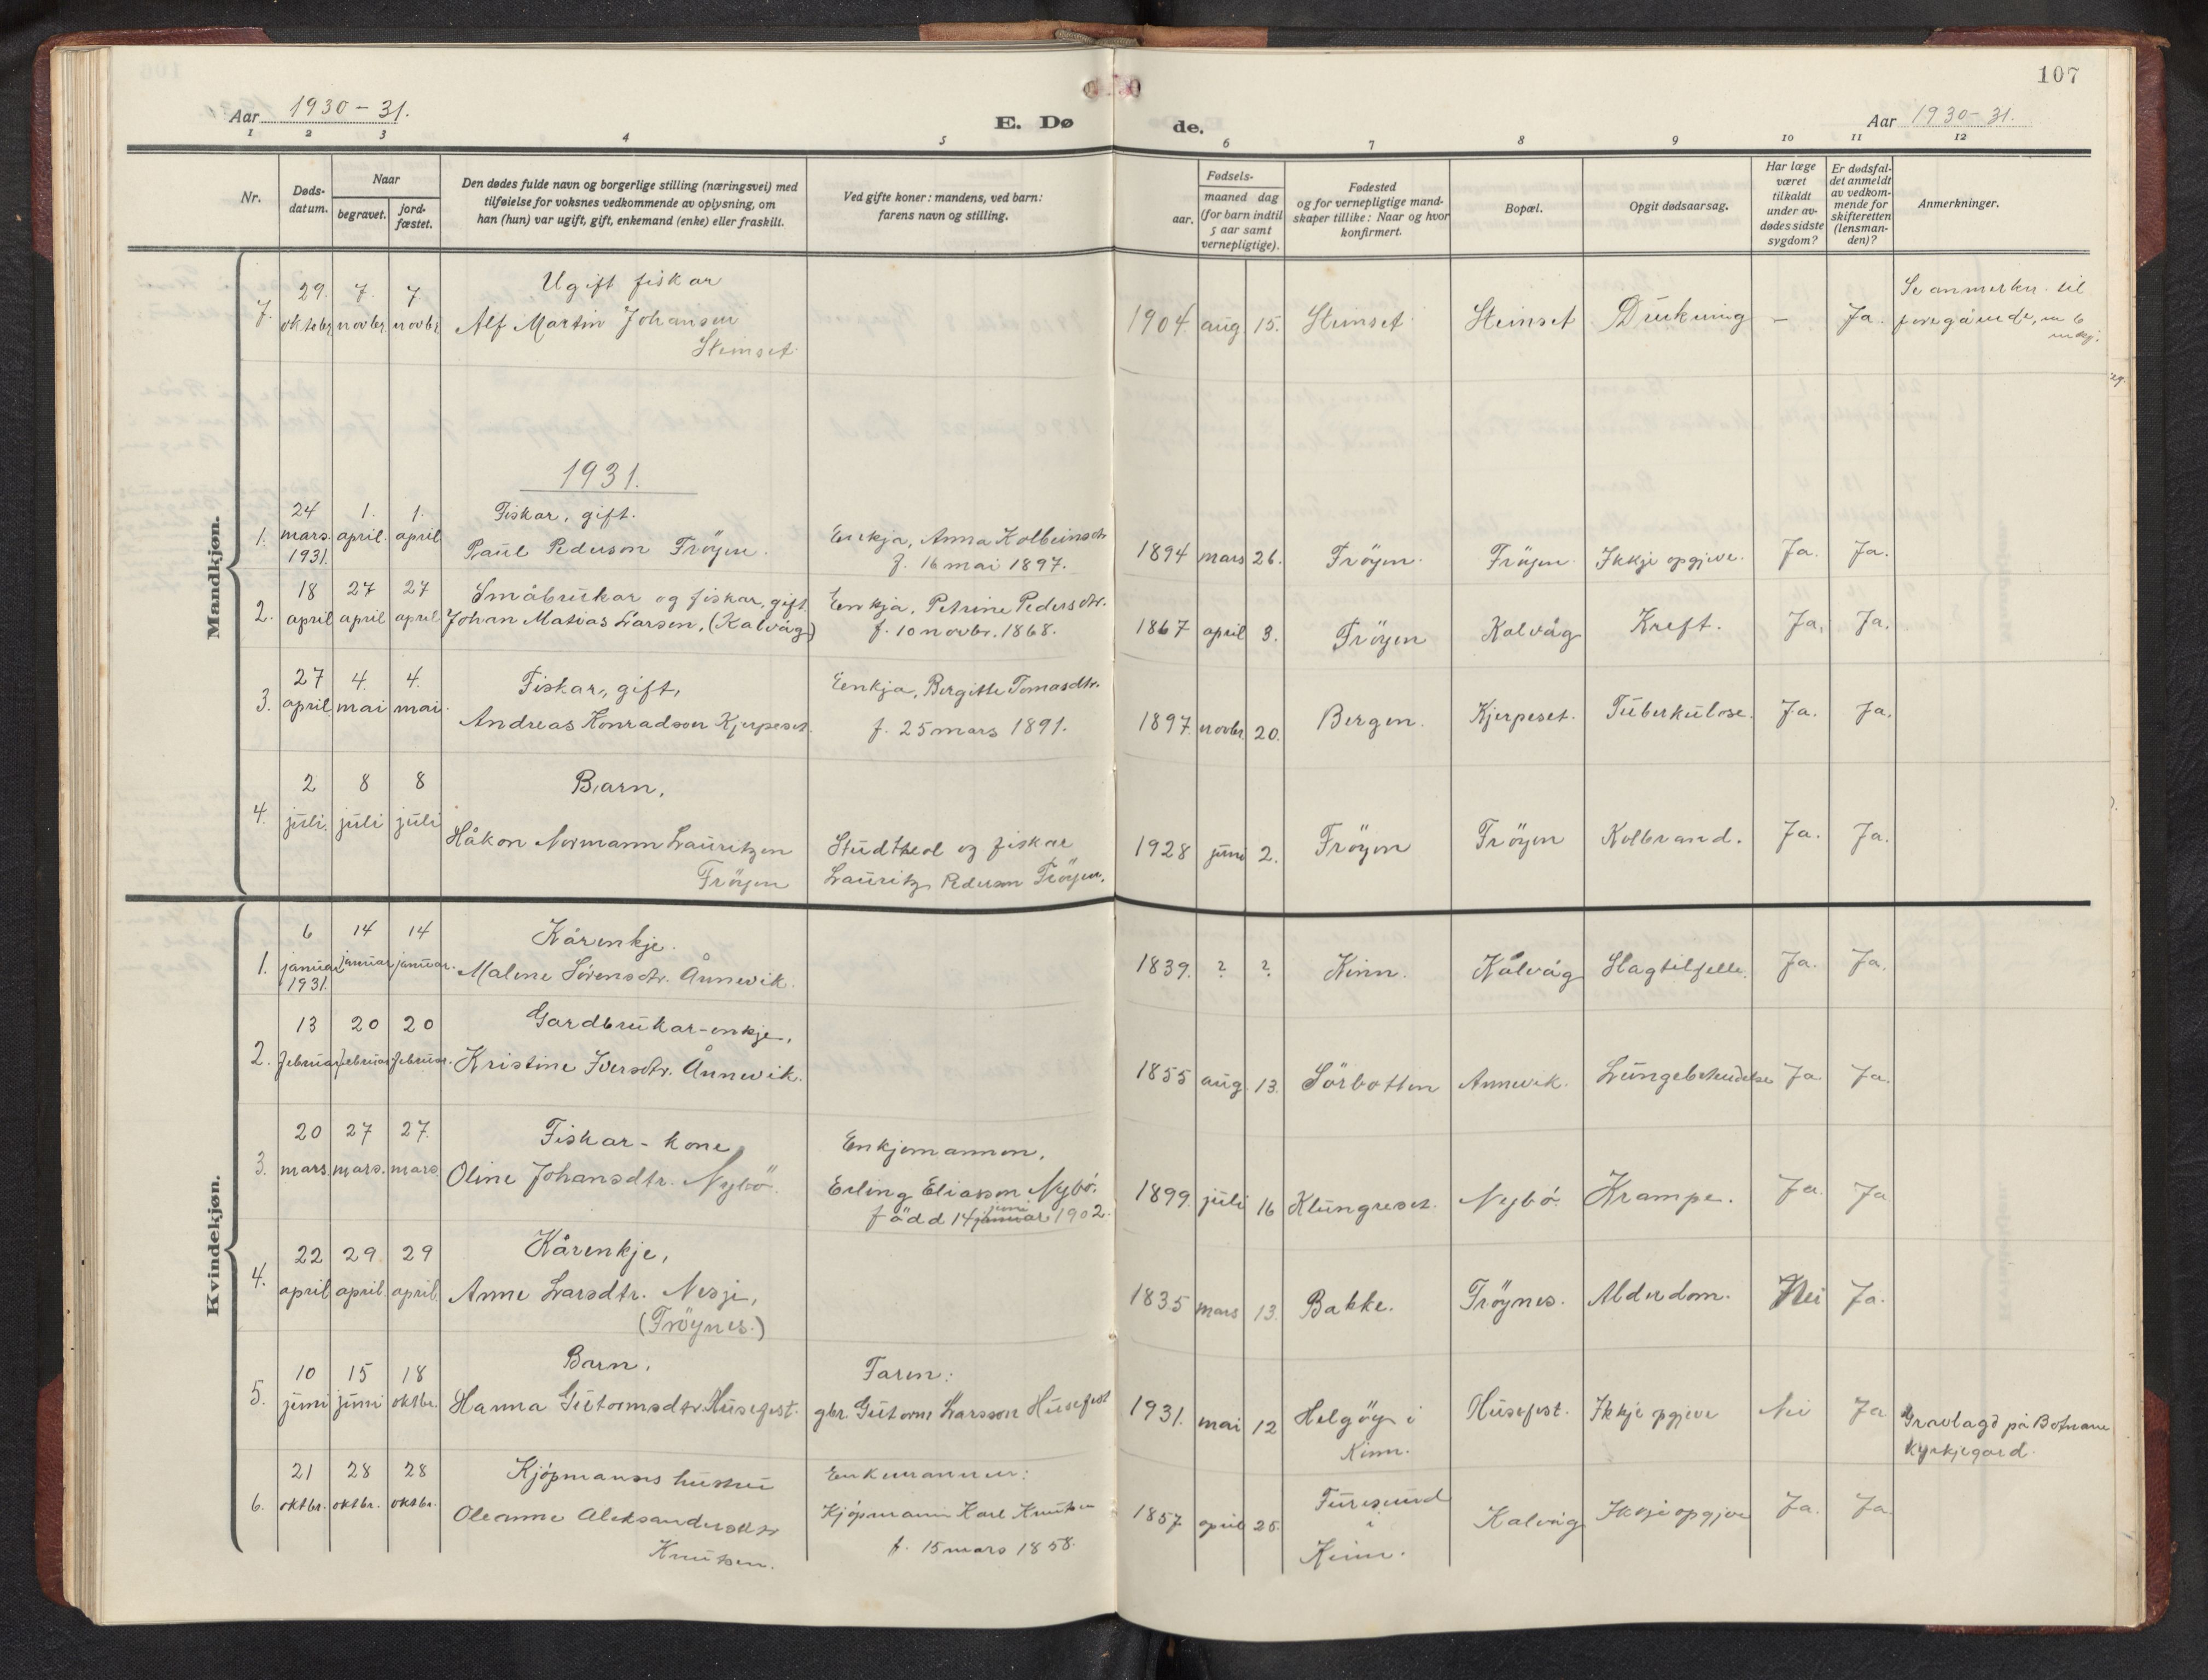 107
Aar 1930-31.
E. Døde.
Aar 1930-31.
1 2 3 4 5 6 7 8 9 10 11 12
Nr.
Døds-
datum.
Naar
begravet.
jord-
fæstet.
Den dødes fulde navn og borgerlige stilling (næringsvei) med
tilføielse for voksnes vedkommende av oplysning, om
han (hun) var ugift, gift, enkemand (enke) eller fraskilt.
Ved gifte koner: mandens, ved barn:
farens navn og stilling.
Fødsels-
aar.
maaned dag
(for barn indtil
5 aar samt
vernepligtige).
Fødested
og for vernepligtige mand-
skaper tillike: Naar og hvor
konfirmert.
Bopæl.
Opgit dødsaarsag.
Har læge
været
tilkaldt
under av-
dødes sidste
sygdom?
Er dødsfal-
det anmeldt
av vedkom-
mende for
skifteretten
(lensman-
den)?
Anmerkninger.
Mandkjøn.
7. 29. oktobr. 7. novbr. 7. novbr.
Ugift fiskar
Alf Martin Johansen
Steinset
1904 aug 15. Steinset Steinset Drukning - Ja.
Se anmerkn. til
foregåande, m 6
1931.
1. 24 mars. 1931. 1. april. 1. april
Fiskar, gift.
Paul Pederson Fröyen.
Enkja, Anna Kolbeinsdtr
f. 16 mai 1897.
1894 mars 26. Fröyen. Fröyen Ikkje opgjeve. Ja. Ja.
2. 18 april 27 april 27 april
Småbrukar og fiskar, gift
Johan Matias Larsen, (Kalvåg)
Enkja, Petrine Pedersdtr.
f. 10 novbr. 1868.
1867 april 3. Fröyen Kalvåg Kreft. Ja. Ja.
3. 27 april 4. mai 4. mai
Fiskar, gift,
Andreas Konradson Kjerpeset.
Enkja, Bergitte Tomasdtr.
f. 25 mars 1891.
1897. novbr 20. Bergen. Kjerpeset. Tuberkulose. Ja. Ja.
4. 2 juli. 8 juli 8 juli
Barn,
Håkon Normann Lauritzen
Fröyen
Stud theol og fiskar
Lauritz Pederson Fröyen.
1928 juni 2. Fröyen Fröyen Kolbrand. Ja. Ja.
Kvindekjøn.
1. 6 januar 1931. 14 januar 14 januar.
Kårenkje.
Malene Sörensdtr. Ånnevik.
1839. ? ? Kinn. Kålvåg Slagtilfelle. Ja. Ja.
2. 13 februar 20 februar 20 februar.
Gardbrukar-enkje,
Kristine Iversdtr. Ånnevik.
1855 aug. 13. Sörbotten Annevik. Lungebetendelse Ja Ja.
3. 20 mars. 27 mars. 27. mars.
Fiskar-kone,
Oline Johansdtr. Nybö.
Enkjemannen,
Erling Eliasson Nybö.
född 14 januar juni 1902.
1899. juli 16 Klungreset. Nybö. Krampe. Ja. Ja
4. 22 april 29 april 29 april.
Kårenkje,
Anne Larsdtr. Nesje,
(Fröynes.)
1835 mars 13. Bakke. Fröynes. Alderdom. Nei Ja.
5. 10 juni 15 juni 18 oktbr.
Barn,
Hanna Gutormsdtr Husefest.
Faren:
gbr. Gutorm Larsson Husefest
1931. mai 12 Helgöy i
Kinn.
Husefest. Ikkje opgjeve Nei Ja
Gravlagd på Botnane
kyrkjegard.
6. 21 oktbr. 28 oktbr. 28 oktbr.
Kjöpmanns hustru
Oleanne Aleksandersdtr
Knutsen.
Enkemannen:
Kjöpmann Karl Knutsen
f. 15 mars 1858.
1857. april 25.
Furesund
i
Kinn.
Kalvåg Ikkje opgjeve Ja. Ja.